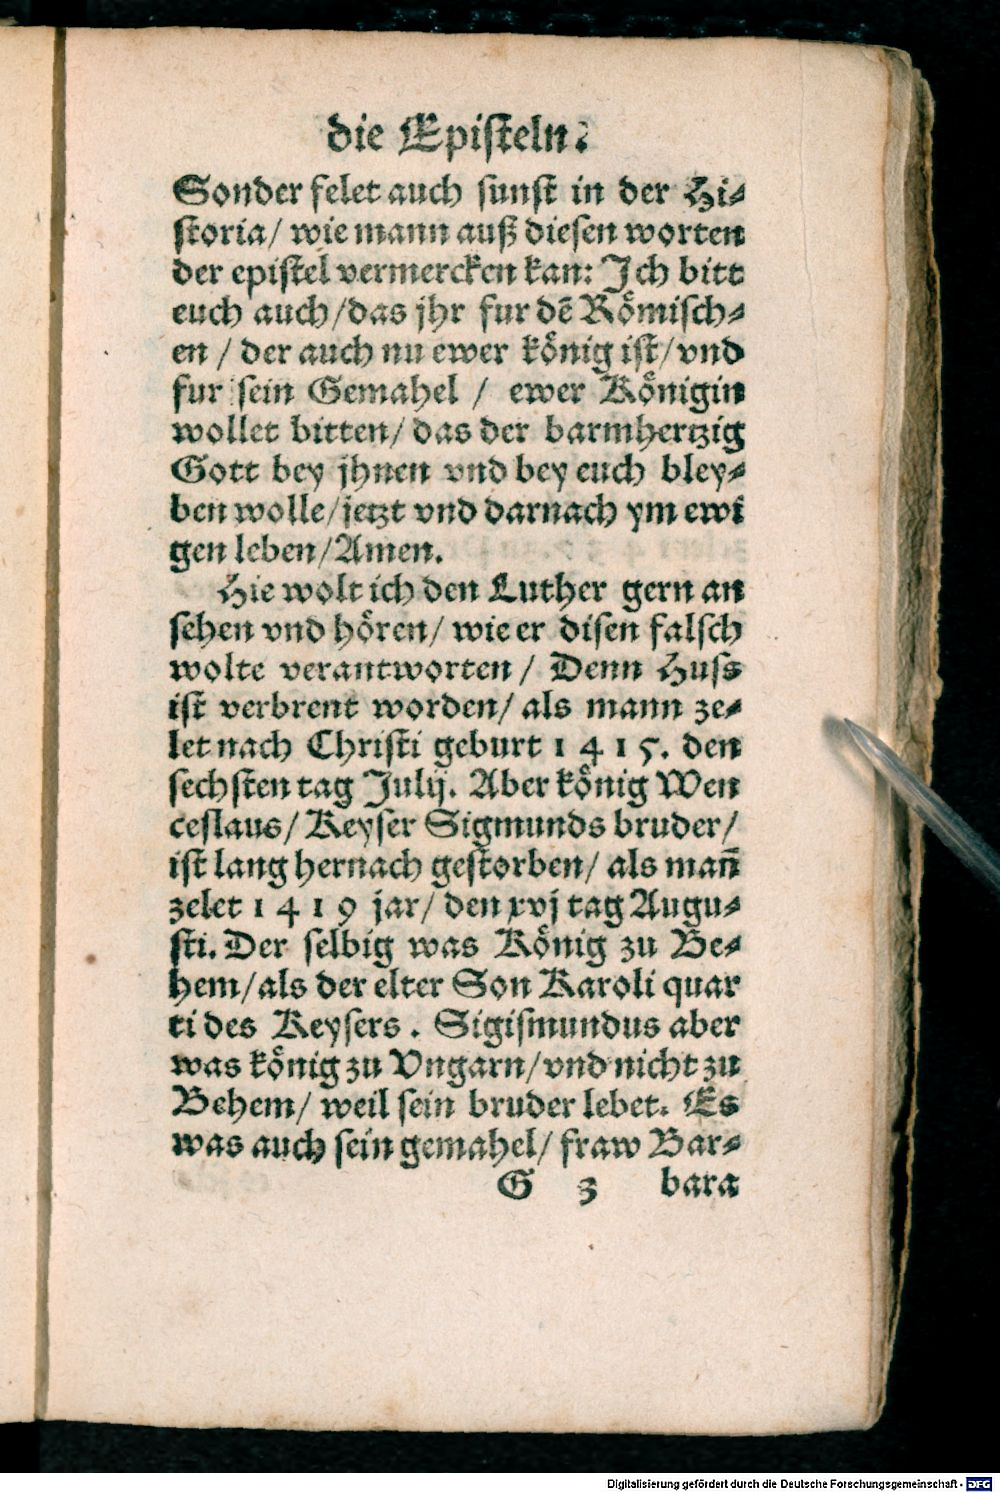 die Episteln?
Sonder felet auch sunst in der Hi-
storia/ wie mann auß diesen worten
der epistel vermercken kan: Ich bitt
euch auch/das jhr fur dē Römisch-
en / der auch nu ewer könig ist/ vnd
fur sein Gemahel / ewer Königin
wollet bitten/ das der barmhertzig
Gott bey jhnen vnd bey euch bley-
ben wolle/jetzt vnd darnach ym ewi
gen leben/Amen.
Hie wolt ich den Luther gern an
sehen vnd hören/ wie er disen falsch
wolte verantworten / Denn Huss
ist verbrent worden/ als mann ze-
let nach Christi geburt 1415. den
sechsten tag Julij. Aber könig Wen
ceslaus/ Keyser Sigmunds bruder/
ist lang hernach gestorben/ als man̄
zelet 1419 jar/ den xvj tag Augu-
sti. Der selbig was König zu Be-
hem/als der elter Son Karoli quar
ti des Keysers. Sigismundus aber
was könig zu Vngarn/vnd nicht zu
Behem/ weil sein bruder lebet. Es
was auch sein gemahel/ fraw Bar-
G 3 bara
Digitalisierung gefördert durch die Deutsche Forschungsgemeinschaft - DFG